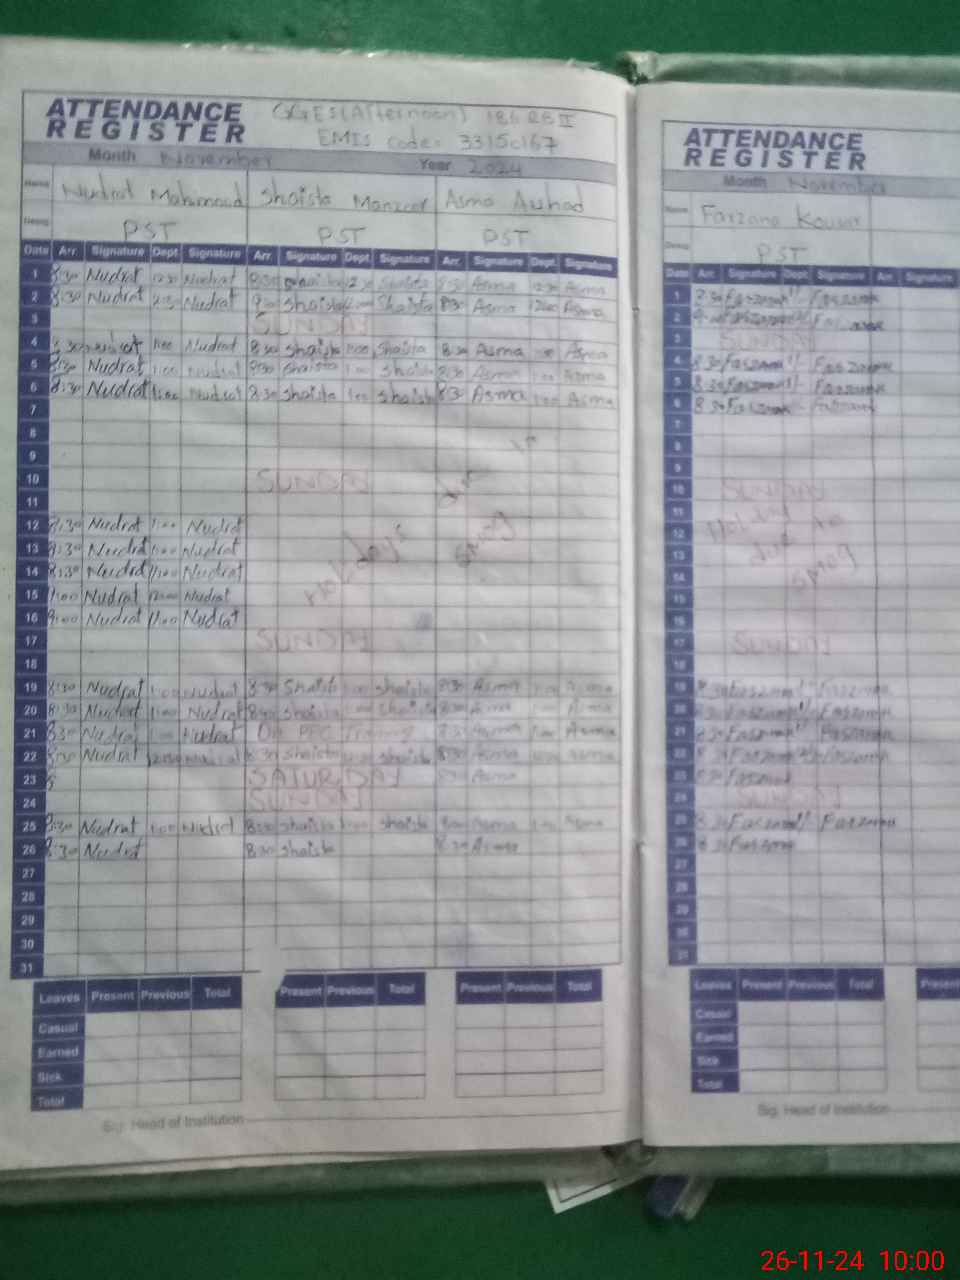 ATTENDANCE
REGISTER
GGES(Afternoon) 186 RB II
EMIS Code: 33150167
Month November Year 2024
Name Nudrat Mahmood Shaista Manzoor Asma Arshad
Desig PST PST PST
Date Arr. Signature Dept. Signature Arr. Signature Dept. Signature Arr. Signature Dept. Signature
1 8:30 Nudrat 12:30 Nudrat 8:30 Shaista 12:30 Shaista 8:30 Asma 12:30 Asma
2 8:30 Nudrat Nudrat Shaista Shaista 8:30 Asma Asma
3 SUNDAY
4 Nudrat 1:00 Nudrat 8:30 Shaista 1:00 Shaista 8:30 Asma 1:00 Asma
5 8:30 Nudrat 1:00 Nudrat 8:30 Shaista 1:00 Shaista 8:30 Asma 1:00 Asma
6 8:30 Nudrat 1:00 Nudrat 8:30 Shaista 1:00 Shaista 8:30 Asma 1:00 Asma
7
8
9
10 SUNDAY
11
Holidays due to smog
12 8:30 Nudrat 1:00 Nudrat
13 Nudrat 1:00 Nudrat
14 8:30 Nudrat 1:00 Nudrat
15 Nudrat Nudrat
16 9:00 Nudrat Nudrat
17 SUNDAY
18
19 8:30 Nudrat 1:00 Nudrat 8:30 Shaista 1:00 Shaista 8:30 Asma 1:00 Asma
20 8:30 Nudrat 1:00 Nudrat Shaista 1:00 Shaista Asma 1:00 Asma
21 8:30 Nudrat 1:00 Nudrat On Training 8:30 Asma 1:00 Asma
22 8:30 Nudrat Nudrat 8:30 Shaista Shaista 8:30 Asma Asma
23 SATURDAY Asma
24 SUNDAY
25 8:30 Nudrat 1:00 Nudrat Shaista 1:00 Shaista Asma 1:00 Asma
26 8:30 Nudrat 8:30 Shaista 8:30 Asma
27
28
29
30
31
Leaves Present Previous Total Present Previous Total Present Previous Total
Casual
Earned
Sick
Total
Sig. Head of Institution
ATTENDANCE
REGISTER
Month November
Name Farzana Kousar
Desig PST
Date Arr. Signature Dept. Signature Arr. Signature
1 8:30 Farzana Farzana
2 Farzana
3 SUNDAY
4 8:30 Farzana Farzana
5 8:30 Farzana Farzana
6 8:30 Farzana Farzana
7
8
9
10 SUNDAY
11
Holiday due to smog
12
13
14
15
16
17 SUNDAY
18
19 8:30 Farzana Farzana
20 8:30 Farzana Farzana
21 8:30 Farzana Farzana
22 8:30 Farzana Farzana
23 Farzana
24 SUNDAY
25 8:30 Farzana Farzana
26 8:30 Farzana
27
28
29
30
31
Leaves Present Previous Total Present
Casual
Earned
Sick
Total
Sig. Head of Institution
26-11-24 10:00